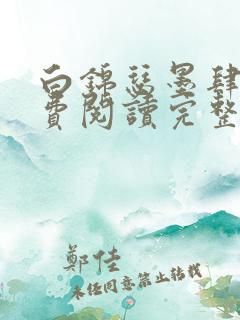 白錦瑟墨肆
費閱讀完整
鄭佳
未經同意禁止轉載